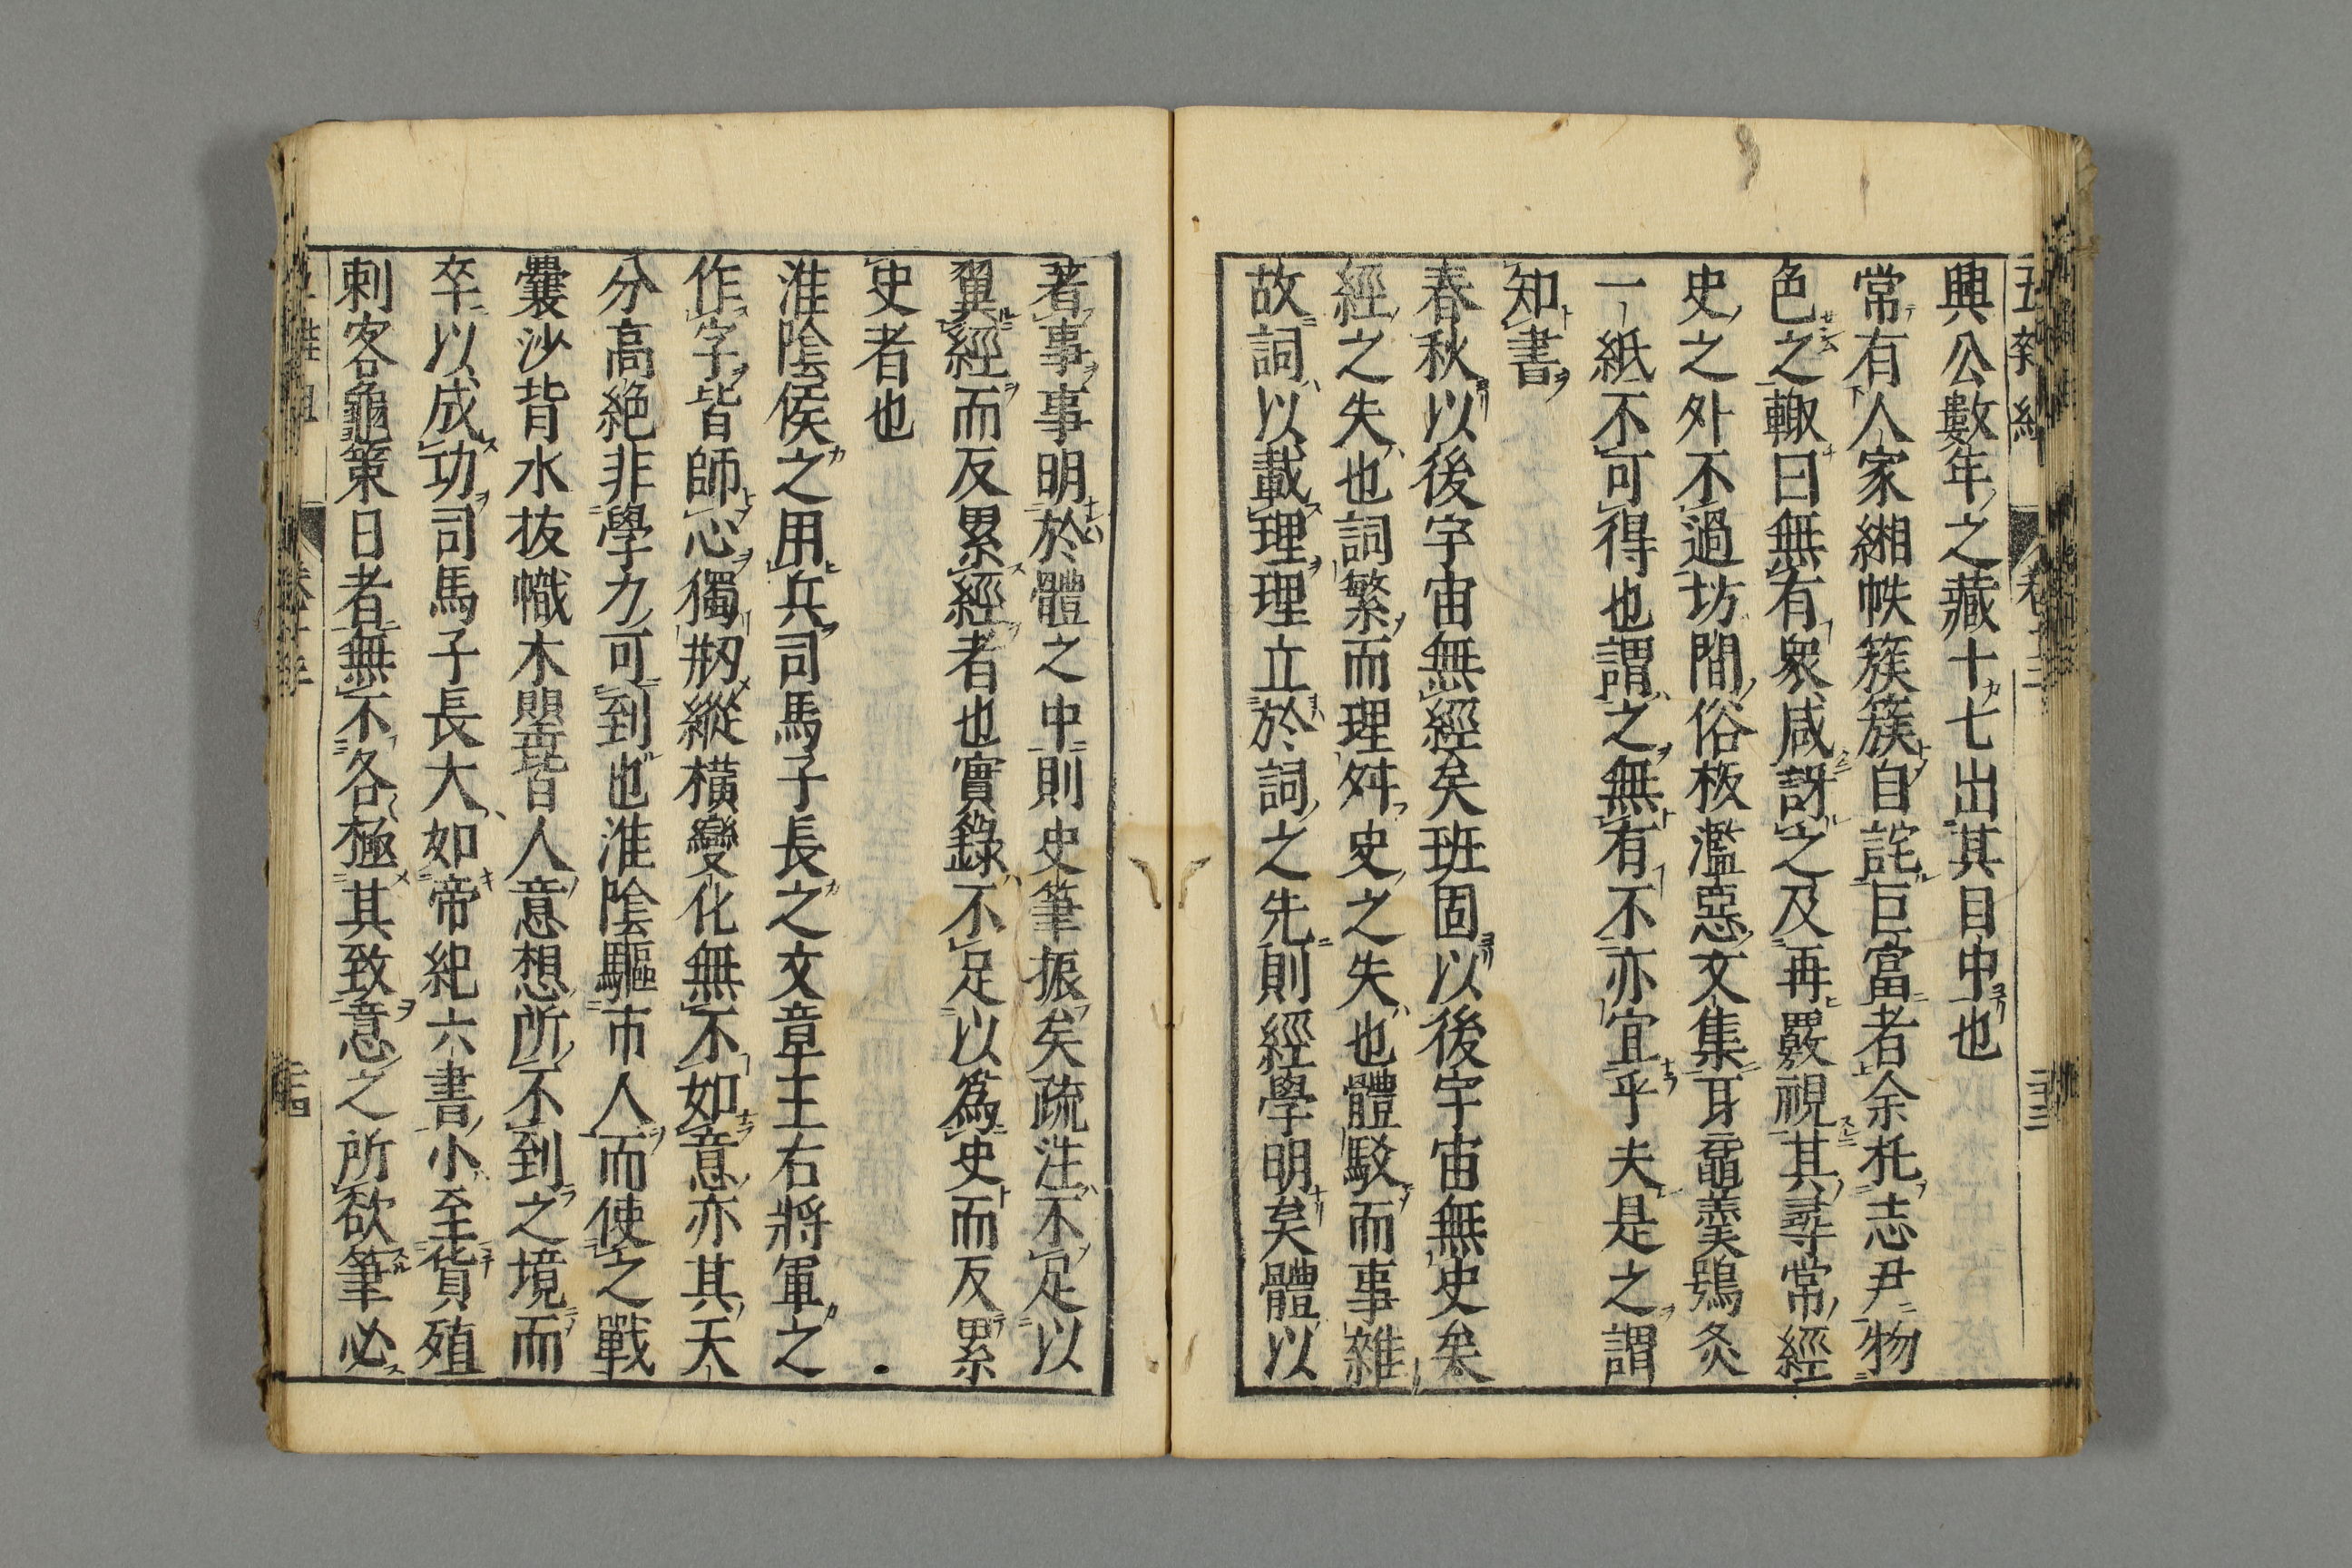 興公數年之藏十七出其目中也
常有人家緗帙簇簇自詫巨富者余托志尹物
色之輙曰無有衆咸訝之及再覈視其尋常經
史之外不過坊間俗板濫惡文集耳黿羹鴞炙
一紙不可得也謂之無有不亦宜乎夫是之謂
知書
春秋以後宇宙無經矣班固以後宇宙無史矣
經之失也詞繁而理舛史之失也體駁而事雜
故詞以載理理立於詞之先則經學明矣體以
著事事明於體之中則史筆振矣疏注不足以
翼經而反累經者也實錄不足以爲史而反累
史者也
淮陰侯之用兵司馬子長之文章王右將軍之
作字皆師心獨剏縱橫變化無不如意亦其天
分高絕非學力可到也淮陰驅市人而使之戰
囊沙背水拔幟木罌皆人意想所不到之境而
卒以成功司馬子長大如帝紀六書小至貨殖
刺客龜策日者無不各極其致意之所欲筆必